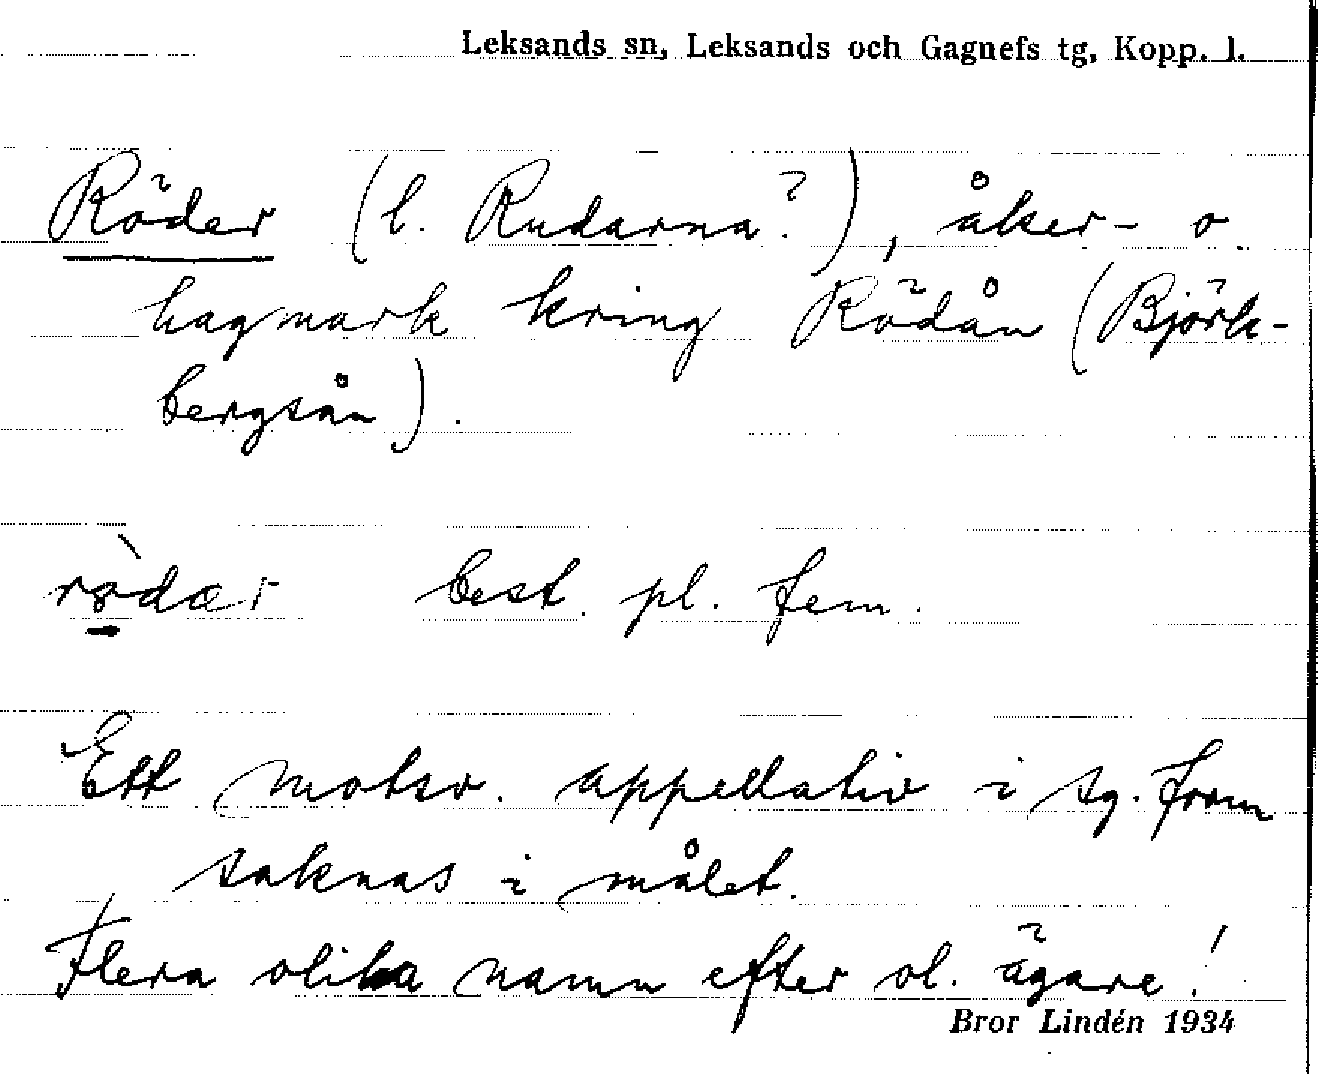 Leksands sn, Leksands och Gagnefs tg, Kopp. l.
Röder (l. Rudarna?), åker- o
hagmark kring Rödån (Björk-
bergsån).
rø̀dær best. pl. fem.
Ett motsv. appellativ i sg. form
saknas i målet.
Flera olika namn efter ol. ägare!
Bror Lindén 1934